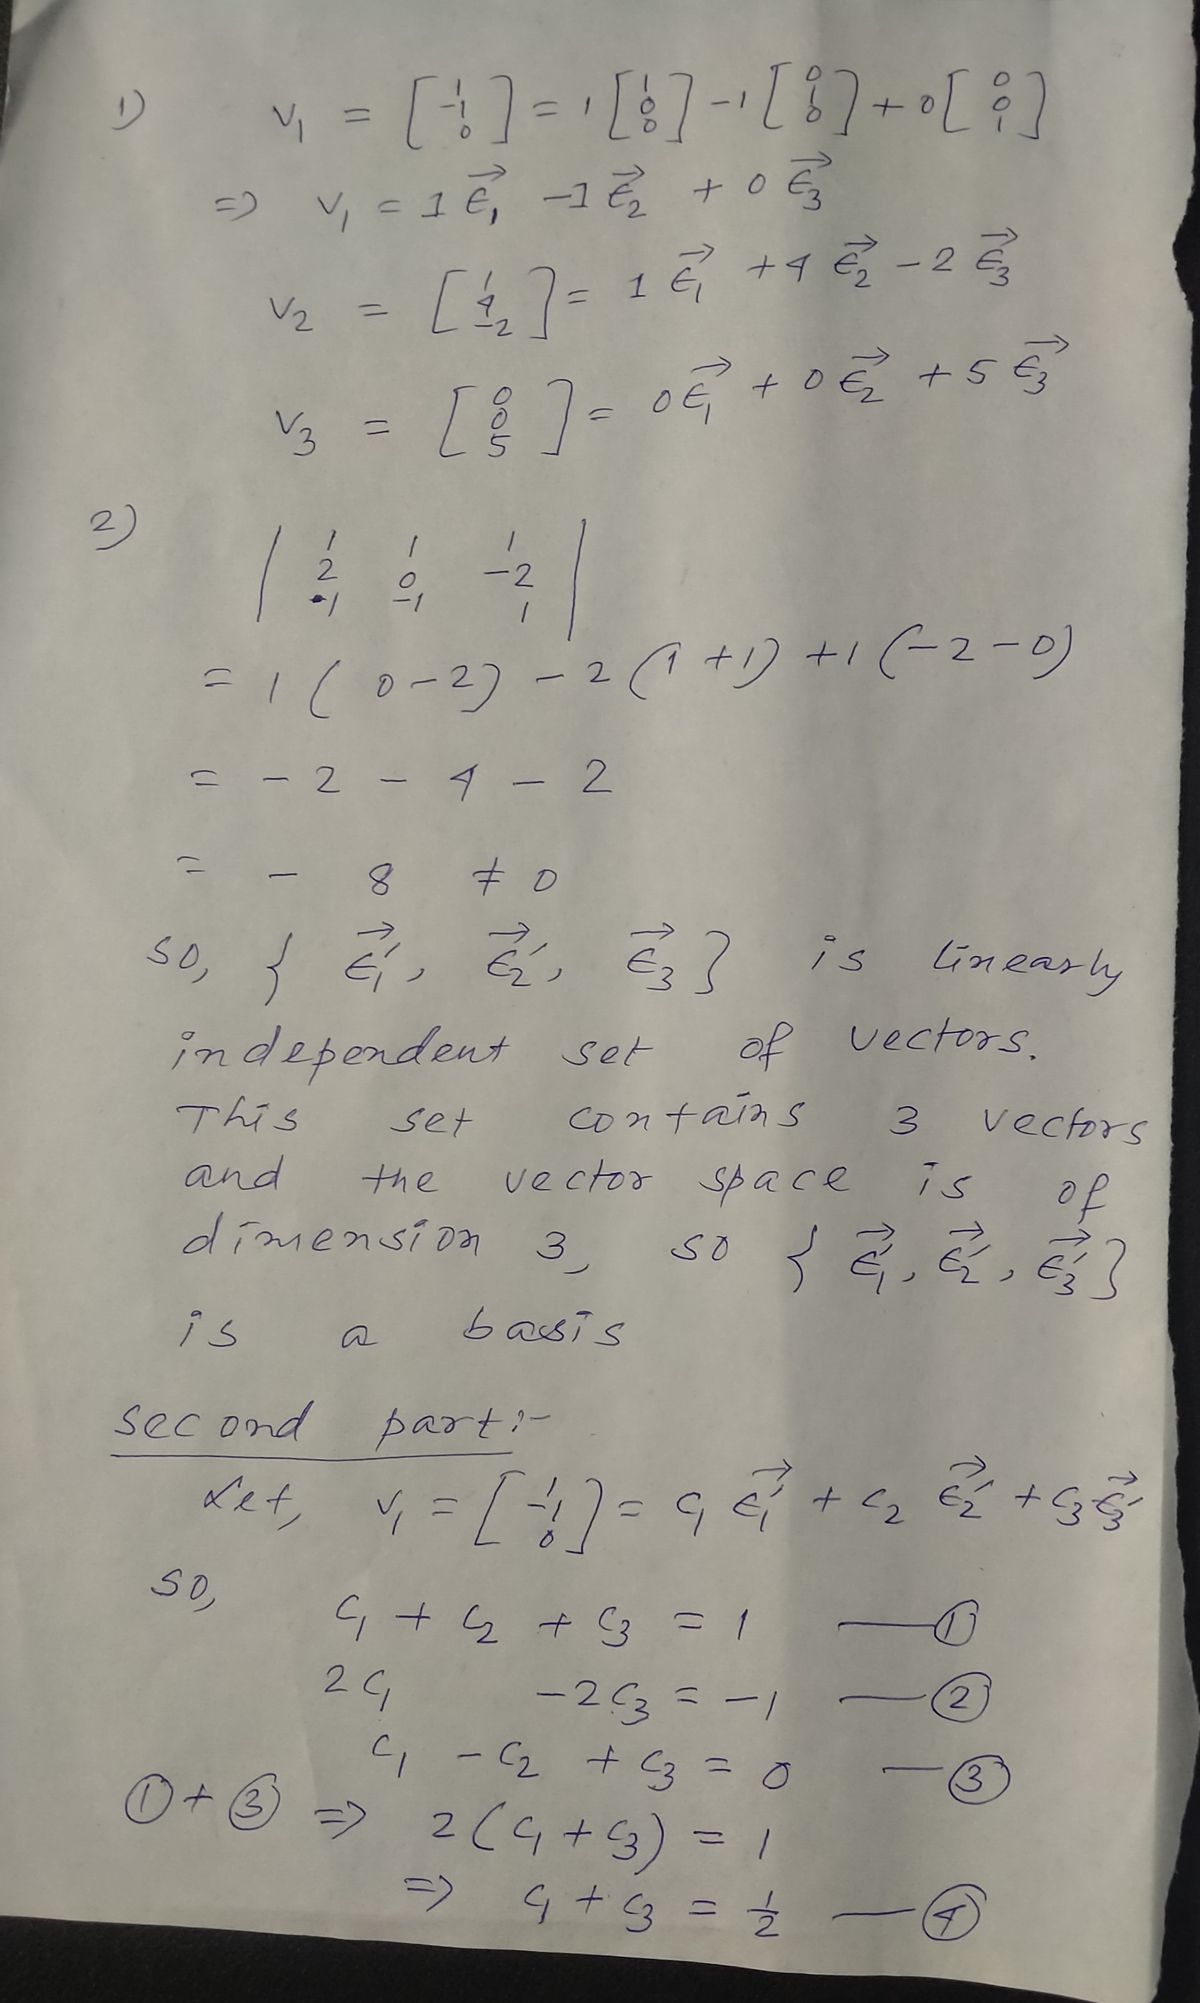 1) v₁ = [1 -1 0] = 1 [1 0 0] -1 [0 1 0] + 0 [0 0 1]
⇒ v₁ = 1 ϵ⃗₁ -1 ϵ⃗₂ + 0 ϵ⃗₃
v₂ = [1 4 -2] = 1 ϵ⃗₁ + 4 ϵ⃗₂ - 2 ϵ⃗₃
v₃ = [0 0 5] = 0 ϵ⃗₁ + 0 ϵ⃗₂ + 5 ϵ⃗₃
2)
| 1 1 1
2 0 -2
-1 -1 1 |
= 1 ( 0 - 2) - 2 (1 + 1) + 1 (-2 - 0)
= - 2 - 4 - 2
= - 8 ≠ 0
so, { ϵ⃗₁′, ϵ⃗₂′, ϵ⃗₃ } is linearly
independent set of vectors.
This set contains 3 vectors
and the vector space is of
dimension 3, so { ϵ⃗₁′, ϵ⃗₂′, ϵ⃗₃′ }
is a basis
second part:-
Let, v₁ = [1 -1 0] = c₁ ϵ⃗₁′ + c₂ ϵ⃗₂′ + c₃ ϵ⃗₃′
so,
c₁ + c₂ + c₃ = 1 — ①
2c₁ - 2c₃ = -1 — ②
c₁ - c₂ + c₃ = 0 — ③
① + ③ ⇒ 2(c₁ + c₃) = 1
⇒ c₁ + c₃ = 1/2 — ④